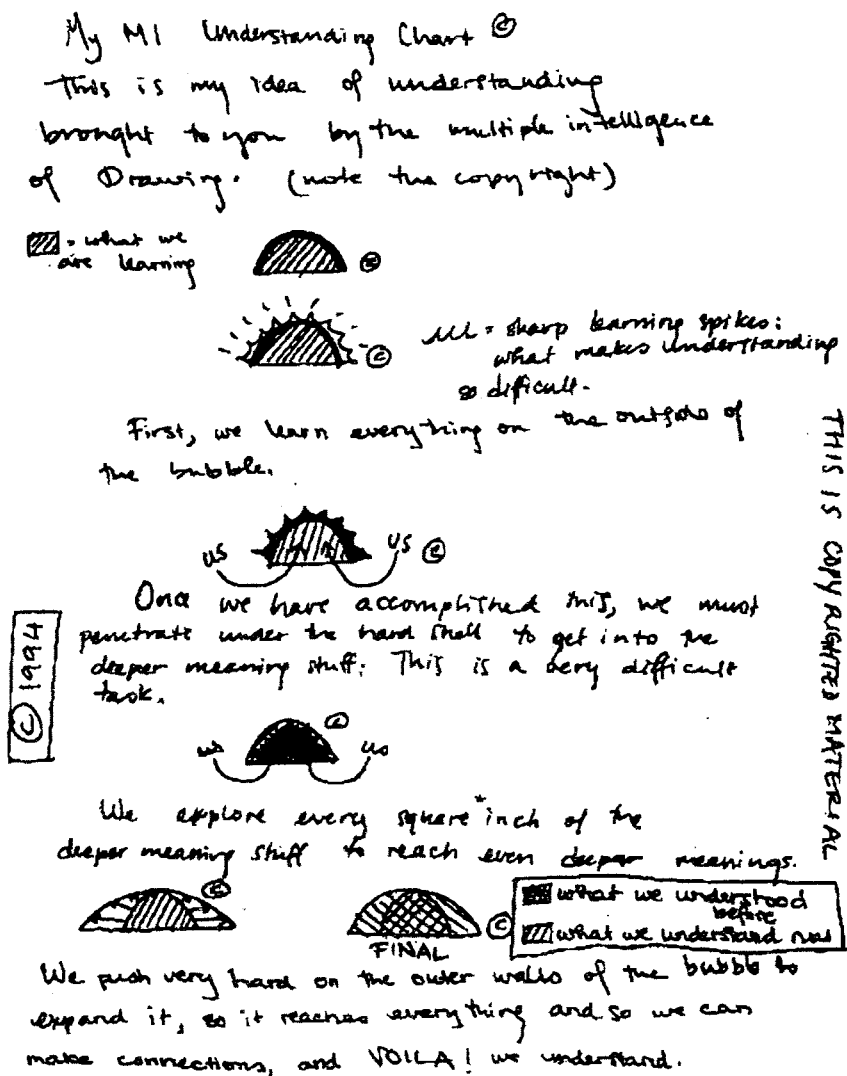 My MI Understanding Chart ©
This is my idea of understanding
brought to you by the multiple intelligence
of Drawing. (note the copyright)
= what we
are learning
©
©
= sharp learning spikes:
what makes understanding
so difficult.
First, we learn everything on the outside of
the bubble.
us us ©
Once we have accomplished this, we must
penetrate under the hard shell to get into the
deeper meaning stuff. This is a very difficult
task.
us us ©
We explore every square * inch of the
deeper meaning stuff to reach even deeper meanings.
©
©
FINAL
what we understood
before
what we understand now
We push very hard on the outer walls of the bubble to
expand it, so it reaches everything and so we can
make connections, and VOILA! we understand.
© 1994
THIS IS COPYRIGHTED MATERIAL